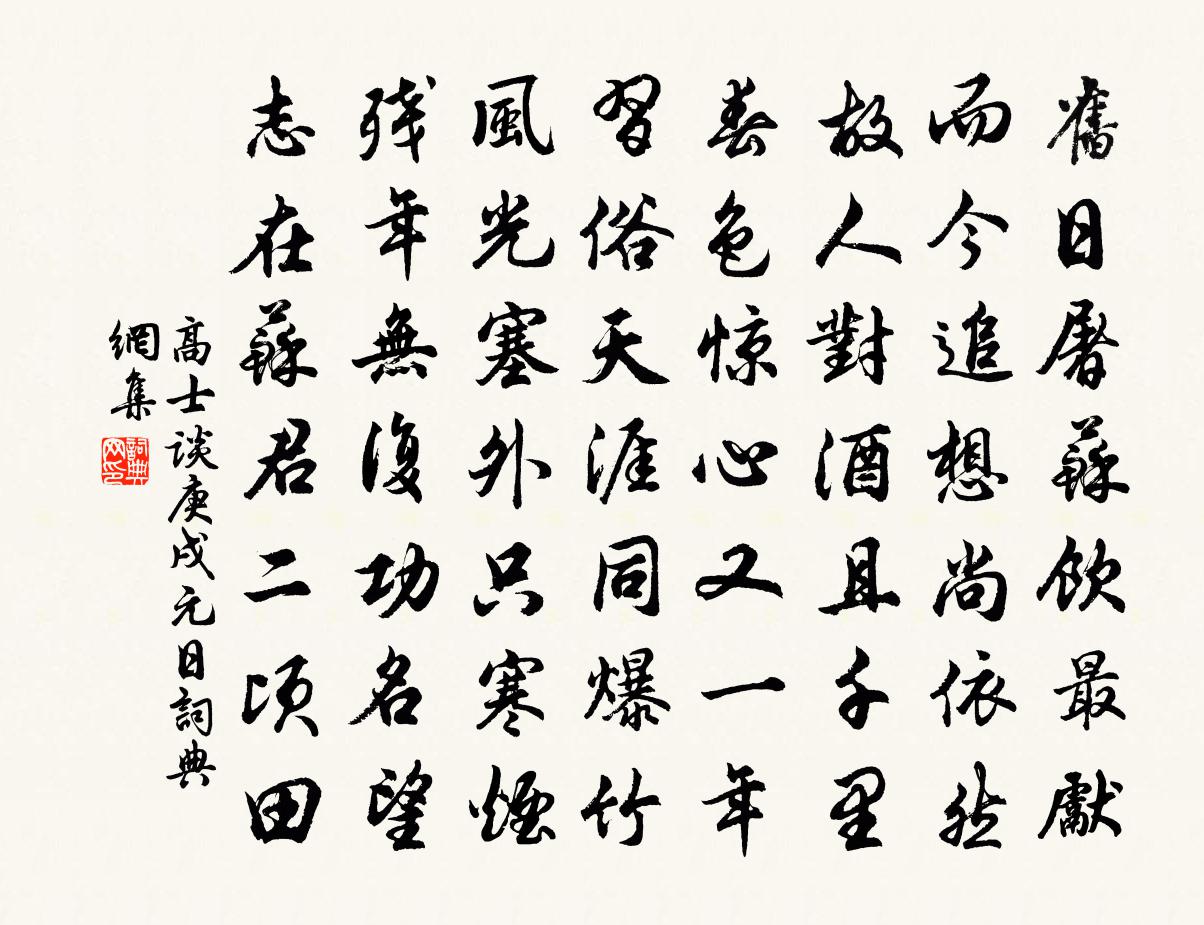 舊日屠蘇飲最獻
而今追想尚依然
故人對酒且千里
春色惊心又一年
習俗天涯同爆竹
風光塞外只寒煙
残年無復功名望
志在蘇君二頃田
高士談庚戌元日詞典
網集
詞典网印